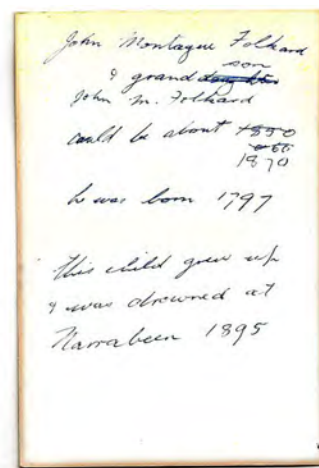 John Montague Folkard
son
& grand daughter
John M. Folkard
could be about 1850
1870
he was born 1797
this child grew up
& was drowned at
Narrabeen 1895